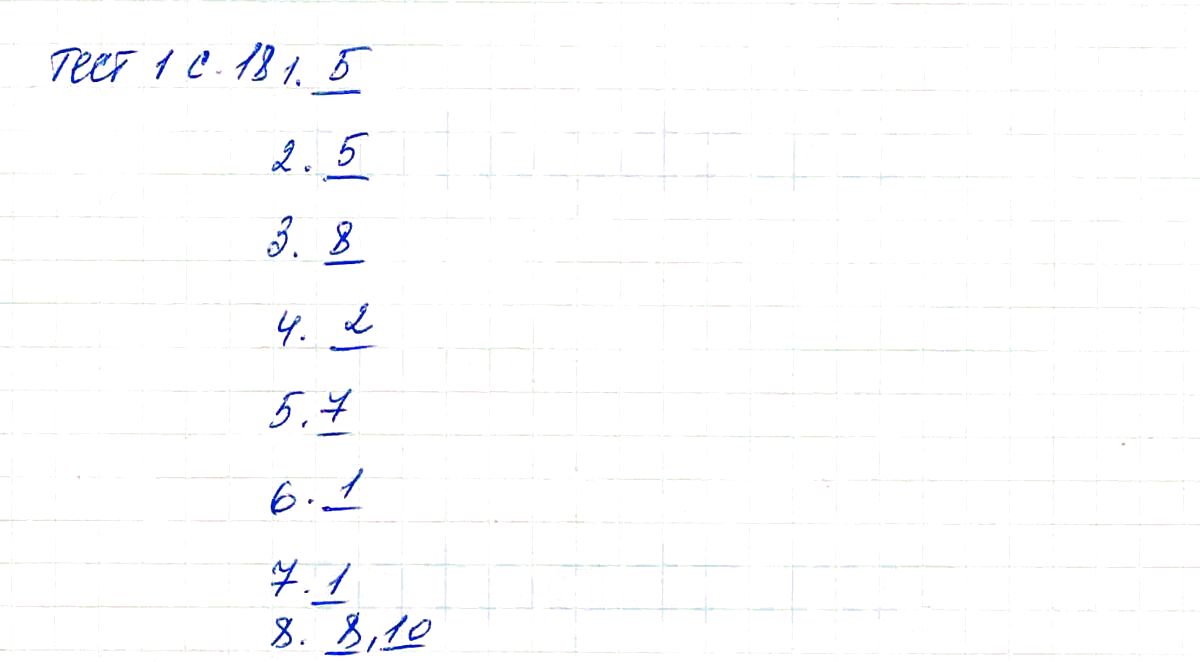 Тест 1 с. 18 1. 5
2. 5
3. 8
4. 2
5. 7
6. 1
7. 1
8. 8, 10